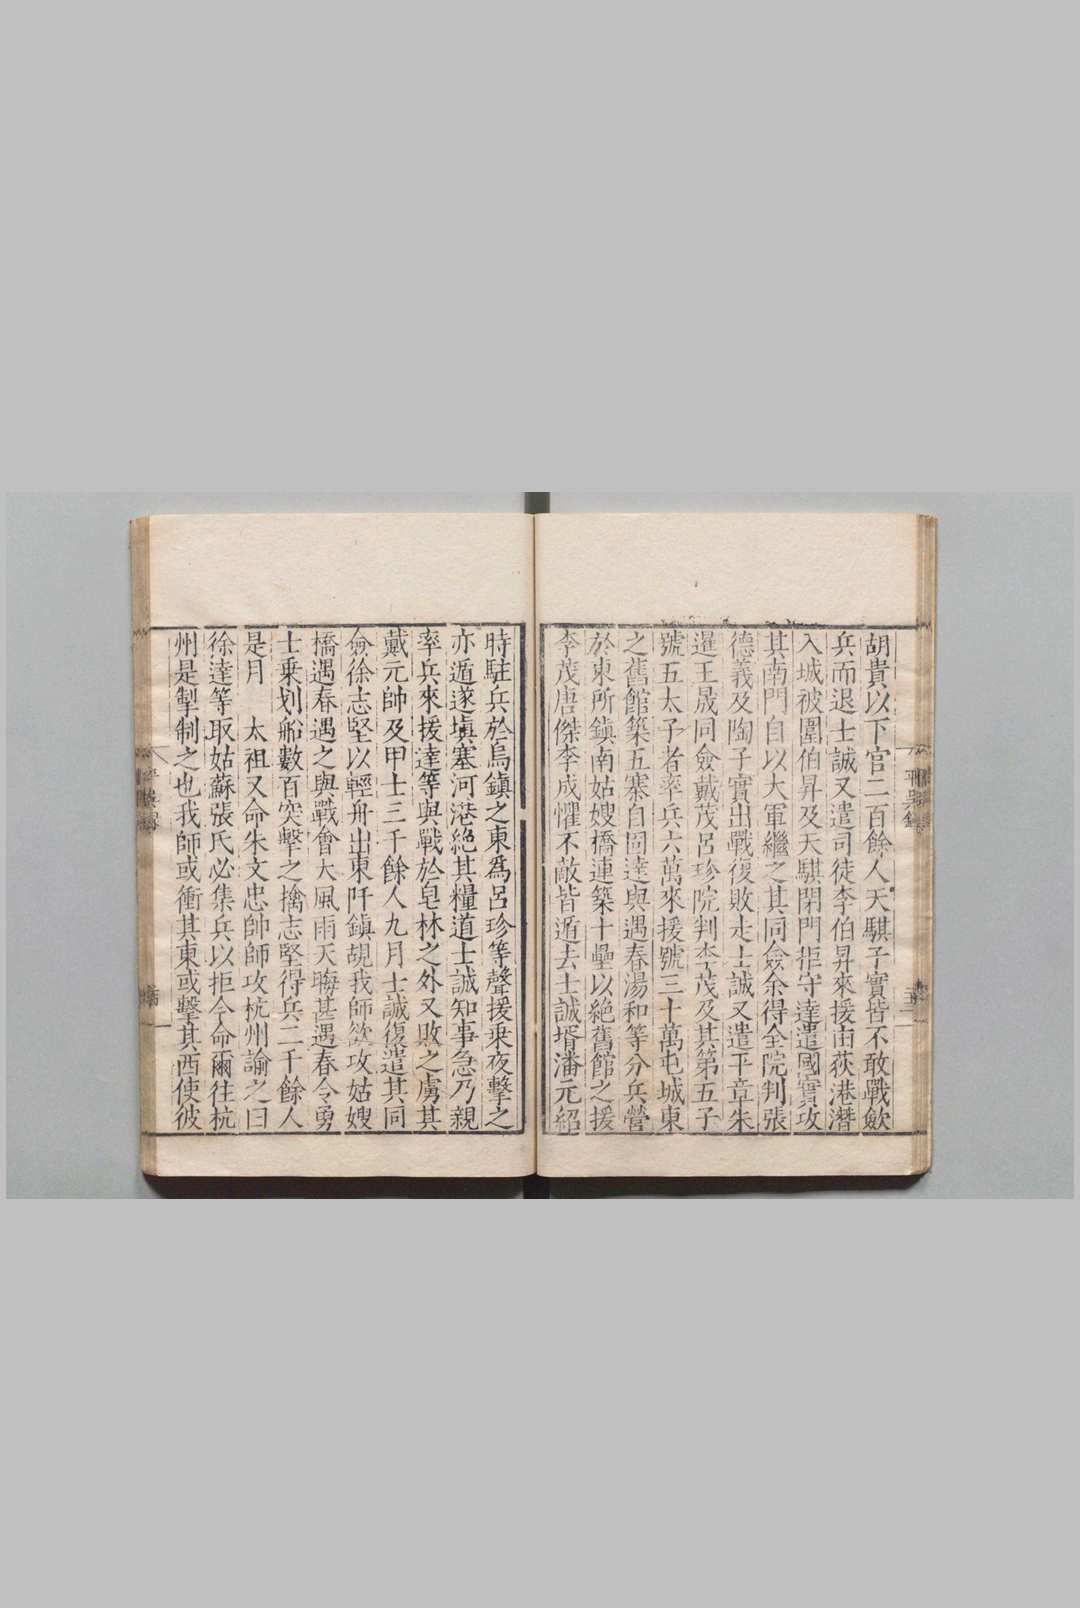 胡貴以下官二百餘人天騏子實皆不敢戰斂
兵而退士誠又遣司徒李伯昇來援由荻港潛
入城被圍伯昇及天騏閉門拒守達遣國寶攻
其南門自以大軍繼之其同僉余得全院判張
德義及陶子實出戰復敗走士誠又遣平章朱
暹王晟同僉戴茂呂珍院判李茂及其第五子
號五太子者率兵六萬來援號三十萬屯城東
之舊館築五寨自固達與遇春湯和等分兵營
於東所鎮南姑嫂橋連築十壘以絕舊館之援
李茂唐傑李成懼不敵皆遁去士誠壻潘元紹
時駐兵於烏鎮之東爲呂珍等聲援乘夜擊之
亦遁遂塡塞河港絕其糧道士誠知事急乃親
率兵來援達等與戰於皂林之外又敗之虜其
戴元帥及甲士三千餘人九月士誠復遣其同
僉徐志堅以輕舟出東阡鎮覘我師欲攻姑嫂
橋遇春遇之與戰會大風雨天晦甚遇春令勇
士乗划船數百突擊之擒志堅得兵二千餘人
是月　太祖又命朱文忠帥師攻杭州諭之曰
徐達等取姑蘇張氏必集兵以拒今命爾往杭
州是掣制之也我師或衝其東或擊其西使彼
平吳錄